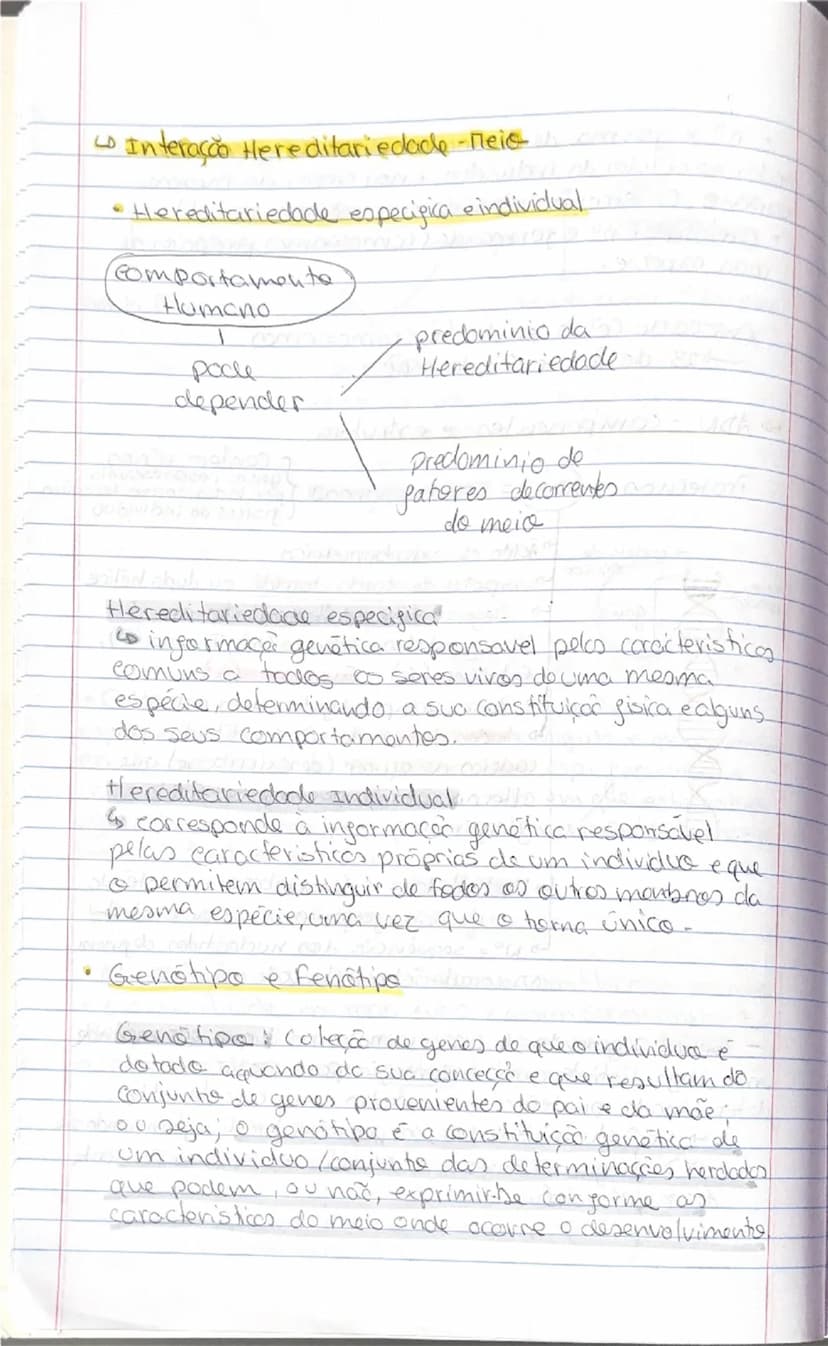 ↳ Interação Hereditariedade - Meio
• Hereditariedade especifica e individual
Comportamento
Humano
pode
depender
predominio da
Hereditariedade
predominio de
fatores decorrentes
do meio
Hereditariedade especifica
↳ informação genética responsavel pelas caracteristicas
comuns a todos os seres vivos de uma mesma
espécie, determinando a sua constituição fisica e alguns
dos seus comportamentos.
Hereditariedade Individual
↳ corresponde à informação genética responsável
pelas caracteristicas próprias de um individuo e que
o permitem distinguir de todos os outros membros da
mesma espécie, uma vez que o torna único.
• Genótipo e Fenótipo
Genótipo: Coleção de genes de que o individuo é
dotado aquando da sua conceção e que resultam do
conjunto de genes provenientes do pai e da mãe;
ou seja, o genótipo é a constituição genética de
um individuo/conjunto das determinações herdadas
que podem, ou não, exprimir-se conforme as
caracteristicas do meio onde ocorre o desenvolvimento